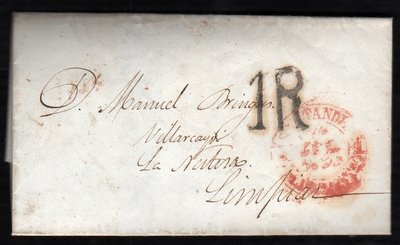 D. Manuel Bringas
1R
Villarcayo
La Nestosa.
Limpias